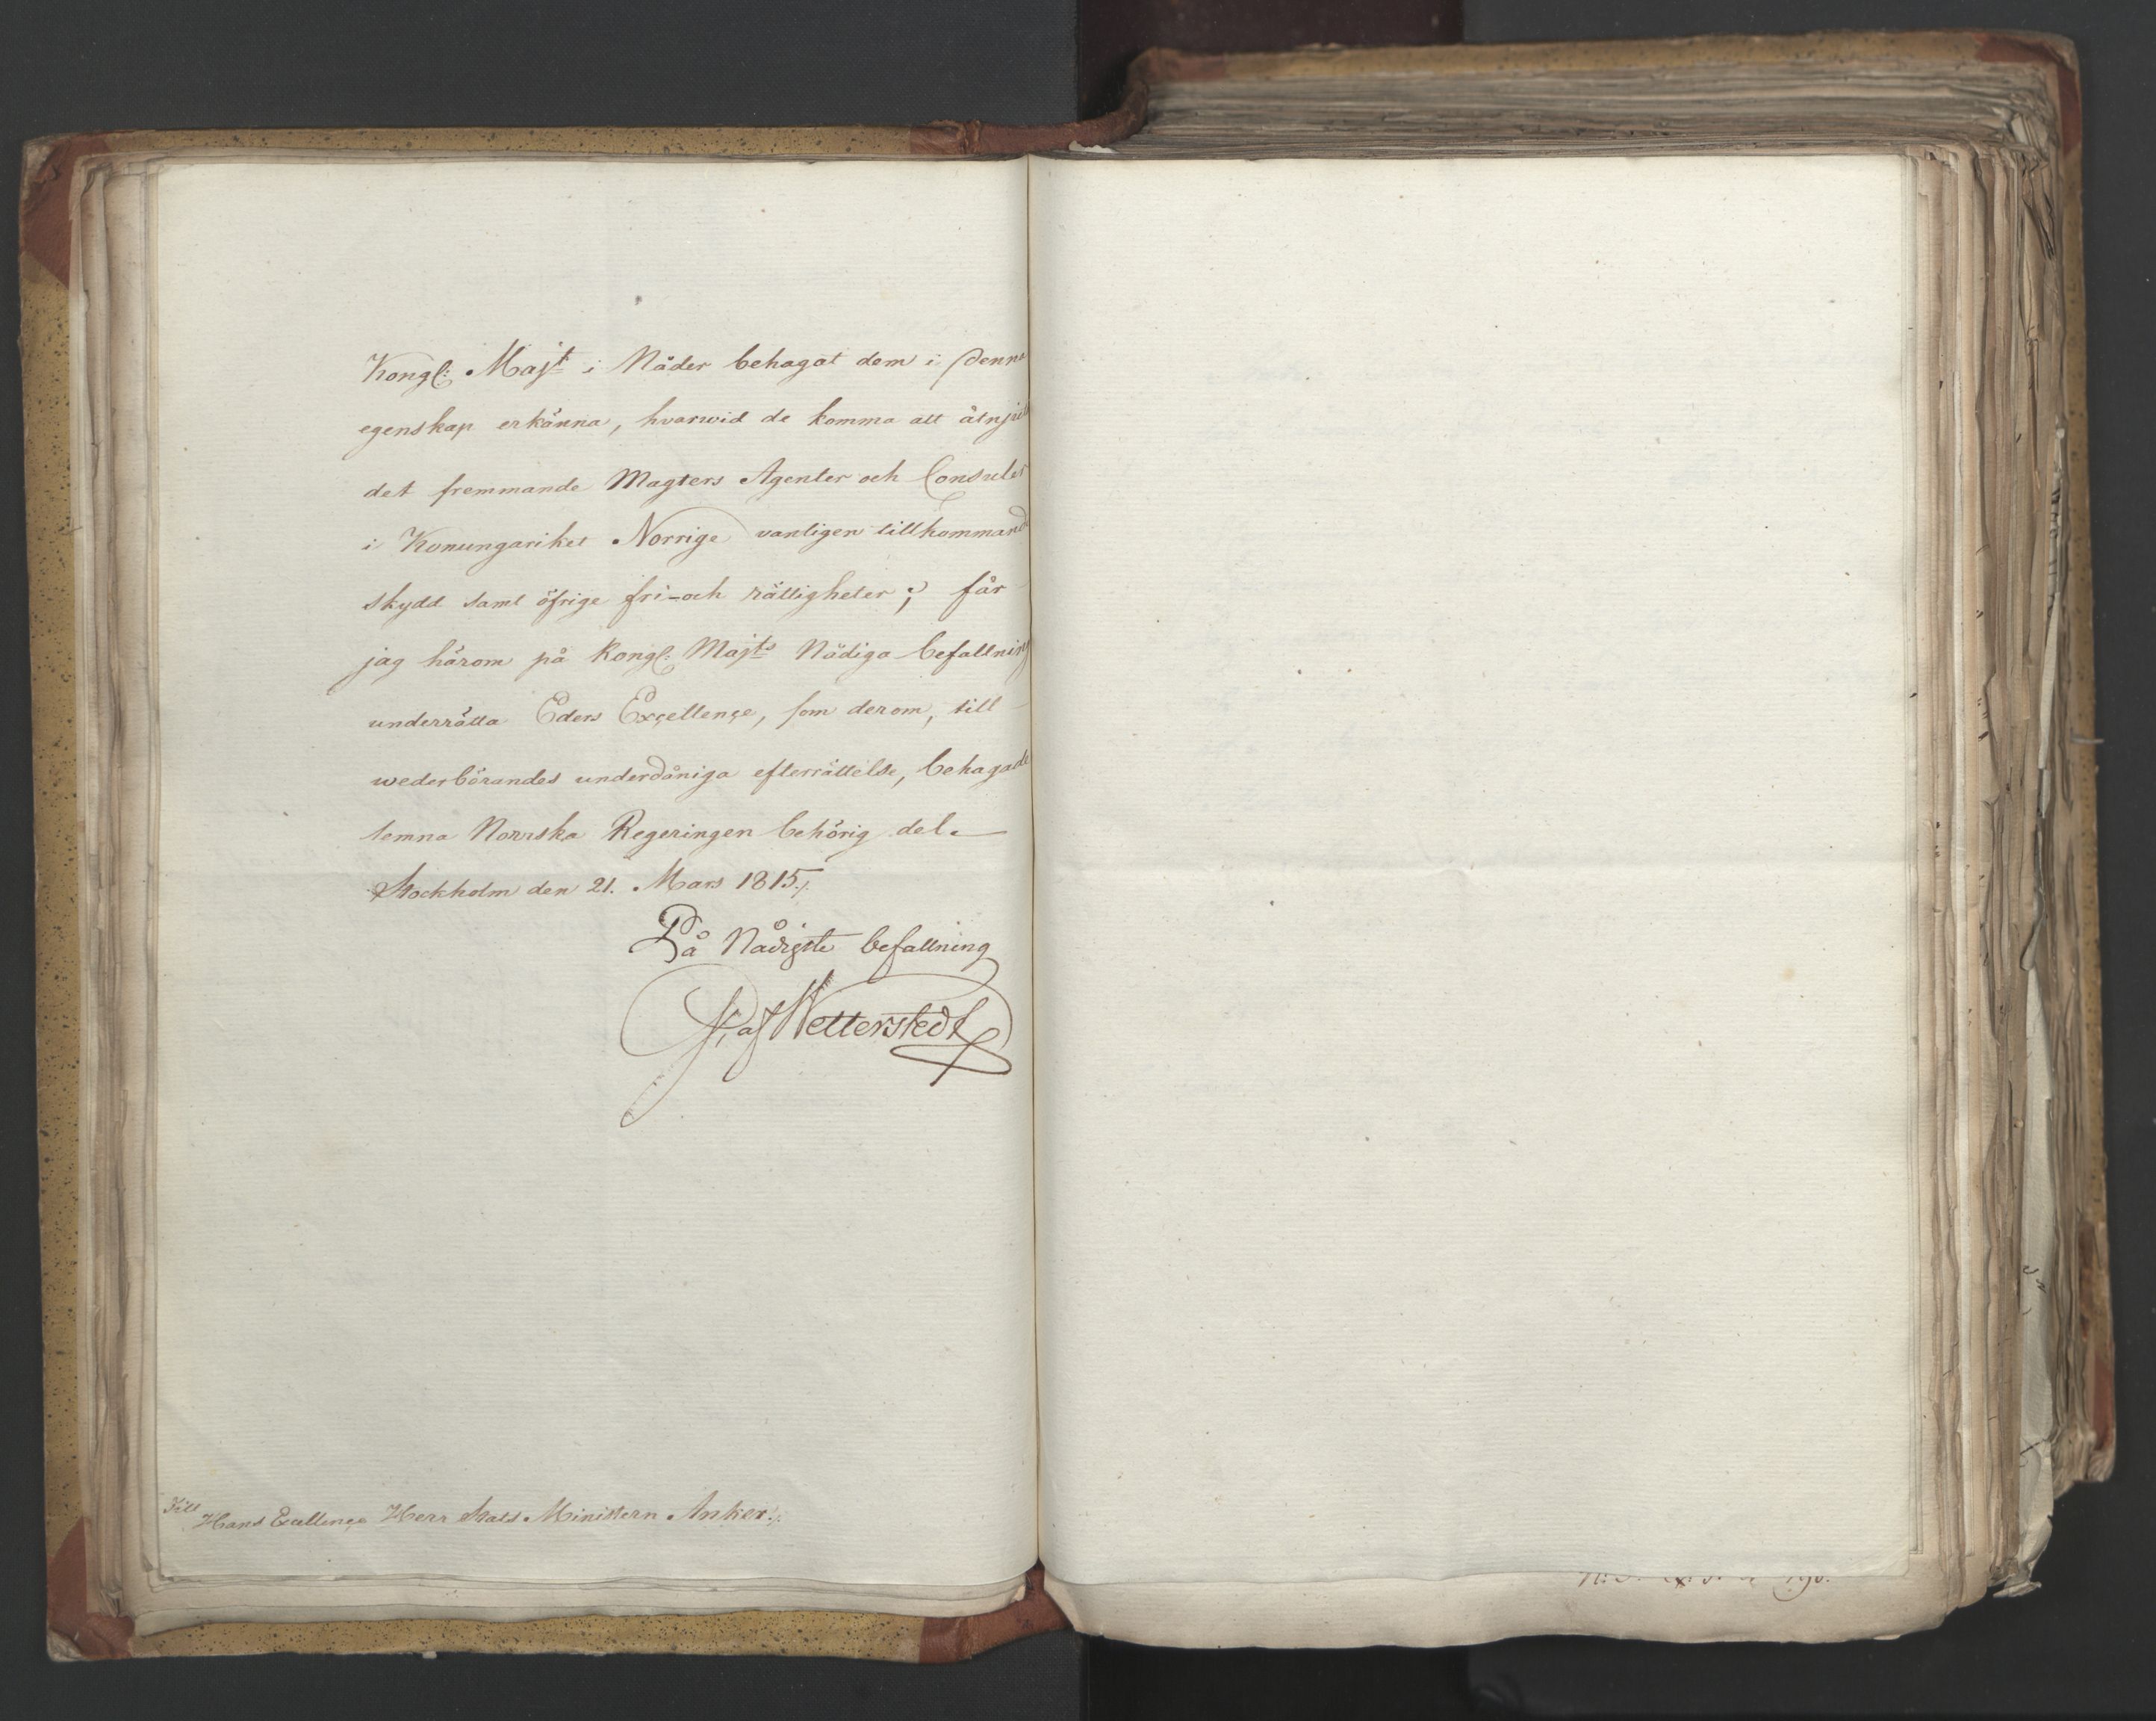 Kongl: Majt i Nåder behagat dem i denna
egenskap erkänna, hvarwid de komma att åtnju
det fremmande Magters Agenter och Consuler
i Konungariket Norrige vanligen tillkommande
skydd samt öfrige fri-och rättigheter; får
jag härom på Kongl: Majts Nådiga befallning
underrätta Eders Exçellençe, som derom, till
wederbörandes underdåniga efterrättelse, behagade
lemna Norrska Regeringen behörig del.
Stockholm den 21. Mars 1815./.
På Nådigste befallning
af Wetterstedt
Till
Hans Excellençe Herr Stats Ministern Anker./.